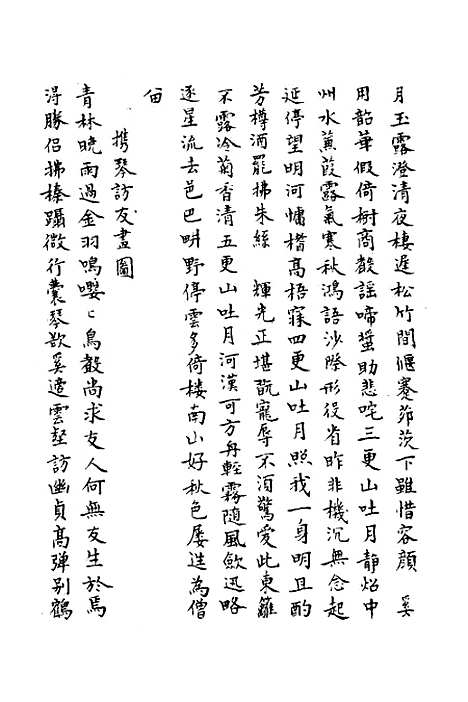 月玉露澄清夜棲遲松竹間偃蹇茆茨下雖惜容顔　奚
用韶華假倚樹商聲謡啼螿助悲咤三更山吐月靜炤中
州水蒹葭露氣寒秋鴻語沙際形役省昨非機沉無念起
延停望明河慵楷高梧寐四更山吐月照我一身明且酌
芳樽酒罷拂朱絲　輝光正堪翫寵辱不須驚愛此東籬
不露冷菊香清五更山吐月河漢可方舟輕霧随風歛迅略
逐星流去邑巴畊野停雲多倚楼南山好秋色屡送為僧
㽞
携琴訪友畫圖
青林晚雨過金羽鳴嚶〻鳥聲尚求友人何無友生於焉
淂勝侣拂榛躡微行囊琴欲奚適雲壑訪幽貞髙弹别鶴